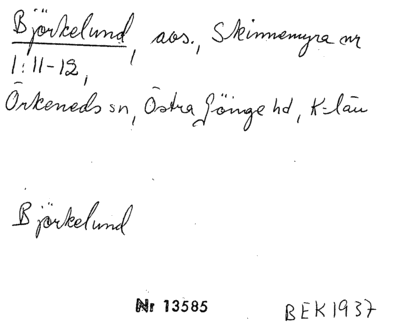 Björkelund, aos., Skinnemyra nr
1:11-12,
Örkeneds sn, Östra Göinge hd, K-län
Björkelund
Nr 13585
BEK1937